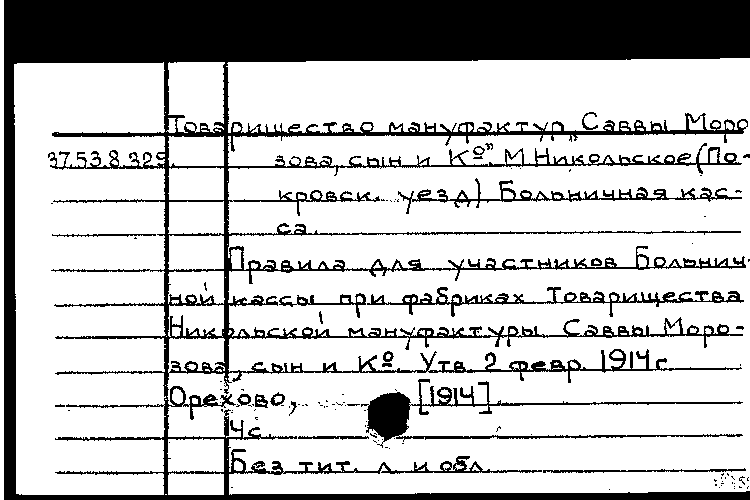 Товарищество мануфактур „Саввы Моро
37.53.8.329. зова, сын и Кº". М Никольское (По-
кровск. уезд). Больничная кас-
са.
Правила для участников Больнич-
ной кассы при фабриках Товарищества
Никольской мануфактуры Саввы Моро-
зова, сын и Кº. Утв. 2 февр. 1914 г.
Орехово, [1914].
4 с.
Без тит. л. и обл.